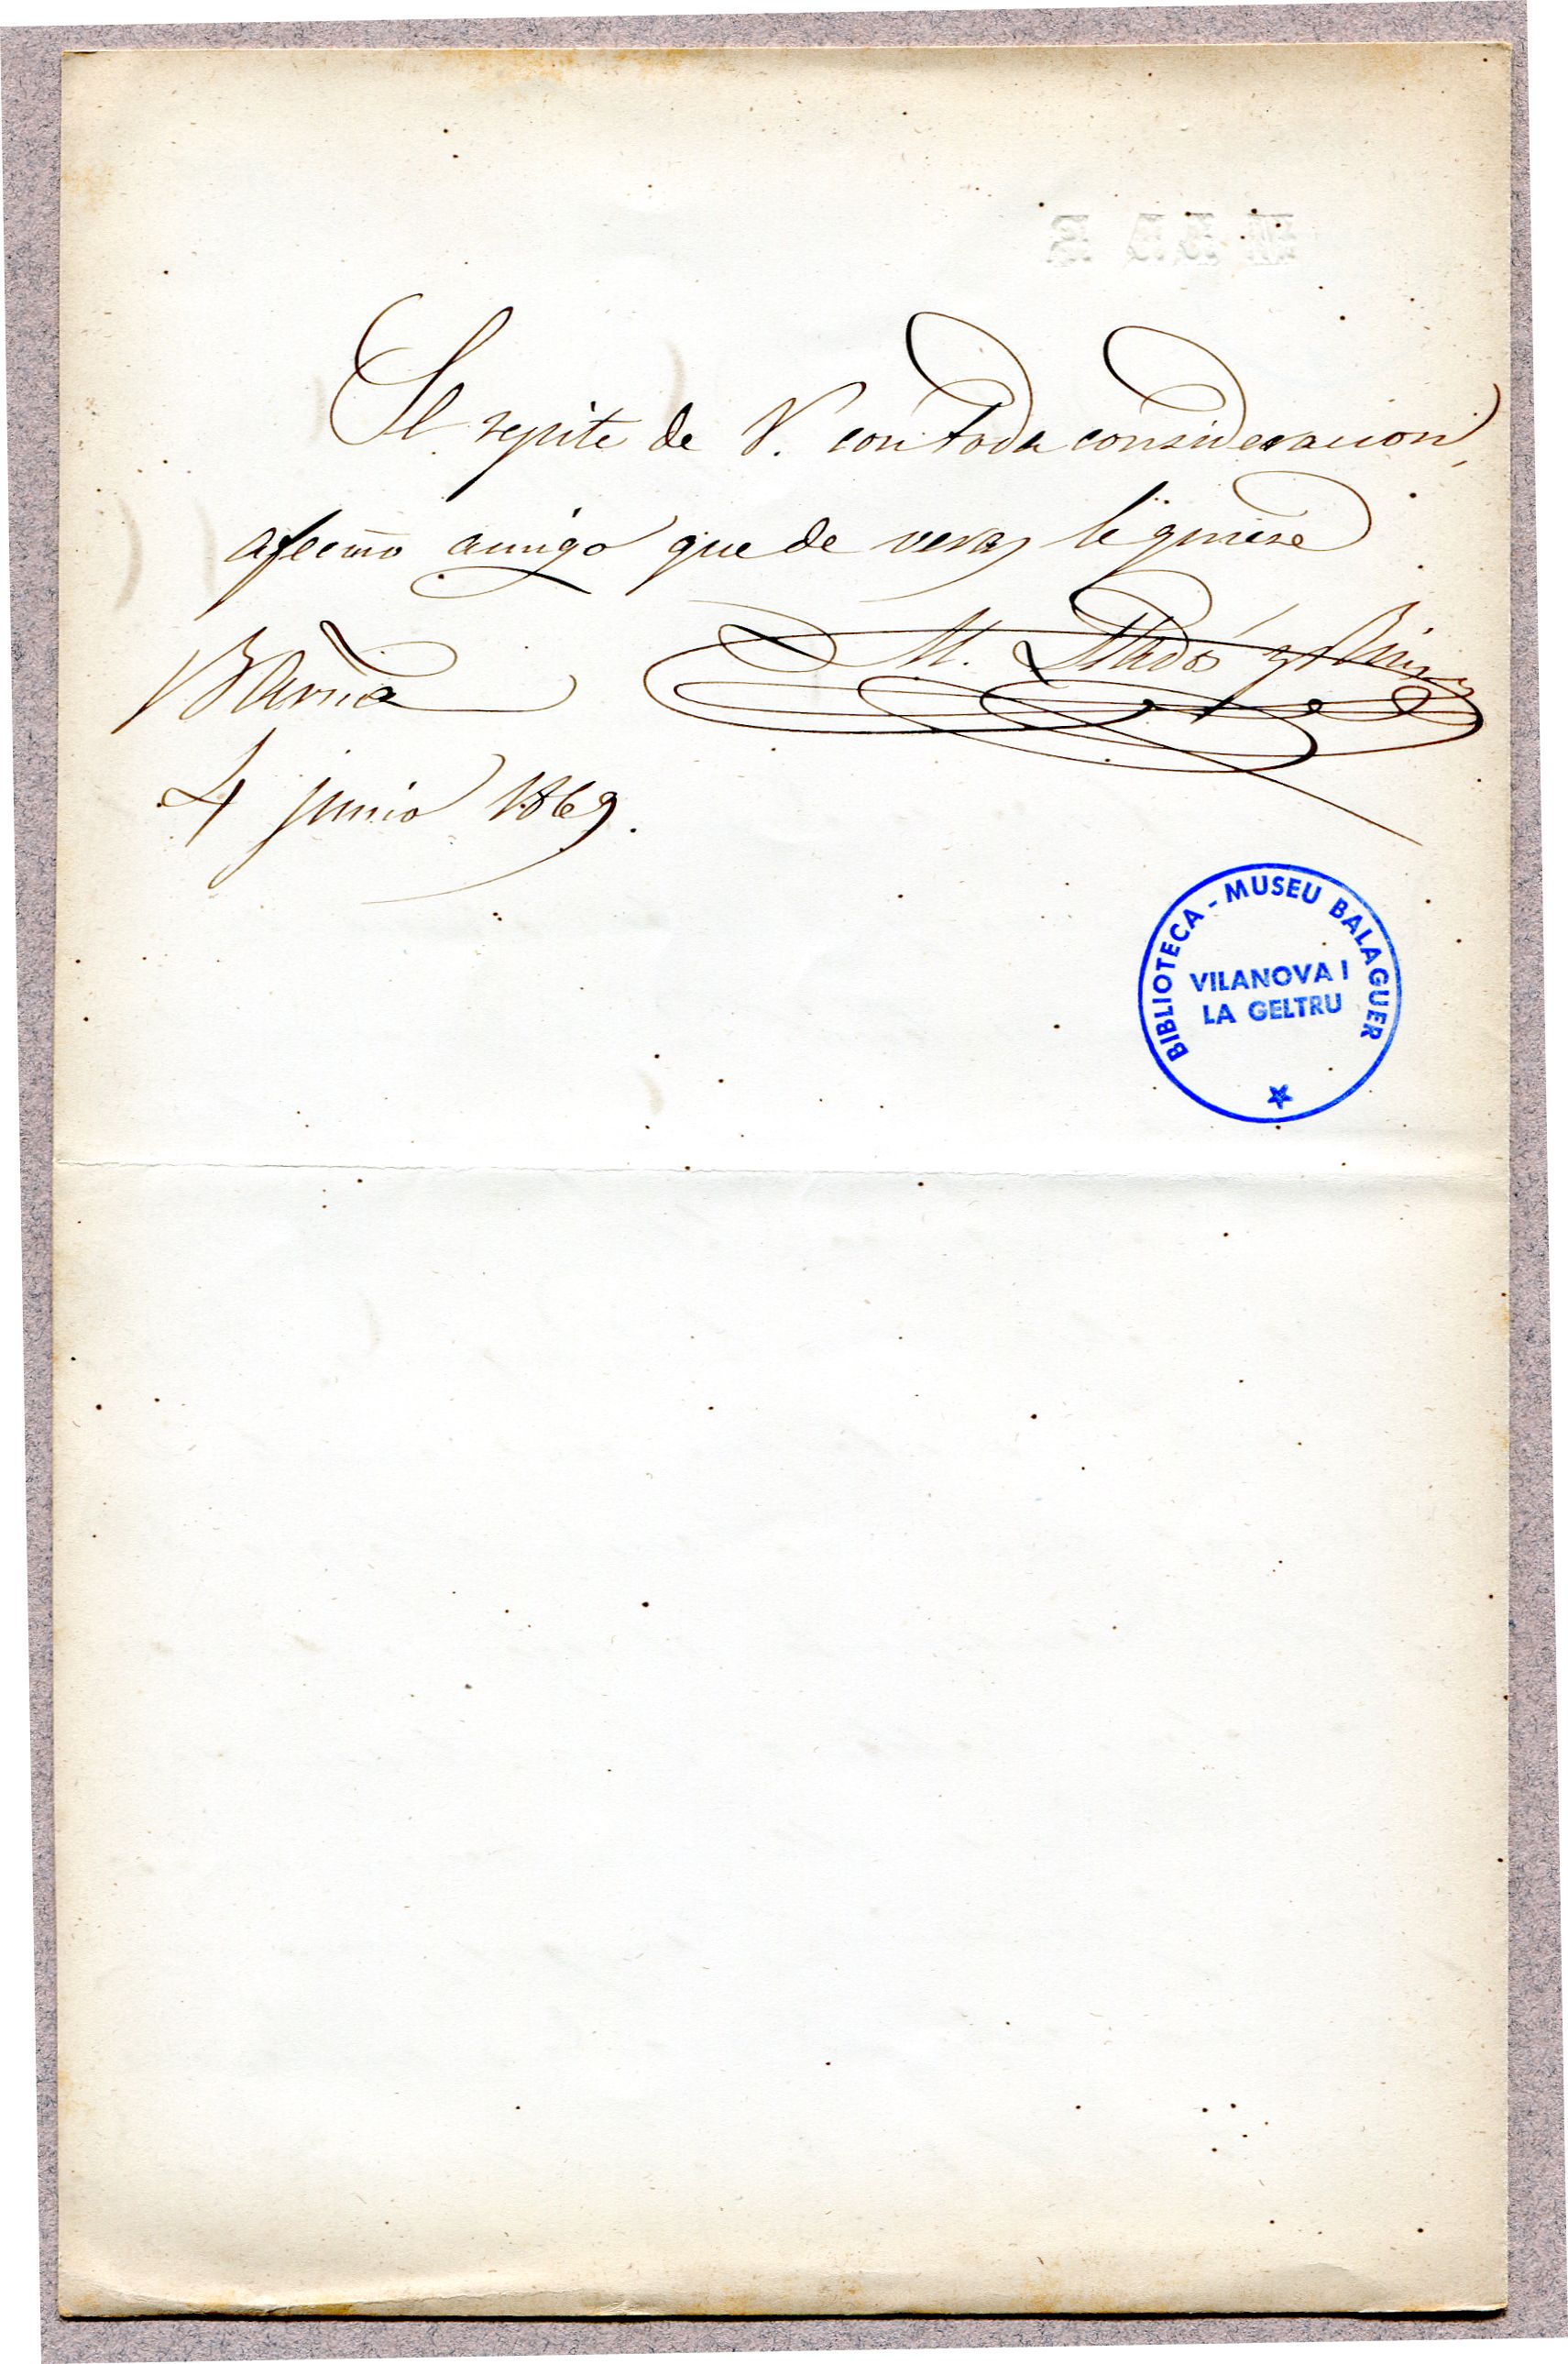 Se repite de V. con toda consideracion,
afecmo amigo que de veras le quiere
M. Lladós y Rius
Barna
4 junio 1869.
BIBLIOTECA - MUSEU BALAGUER
VILANOVA I
LA GELTRU